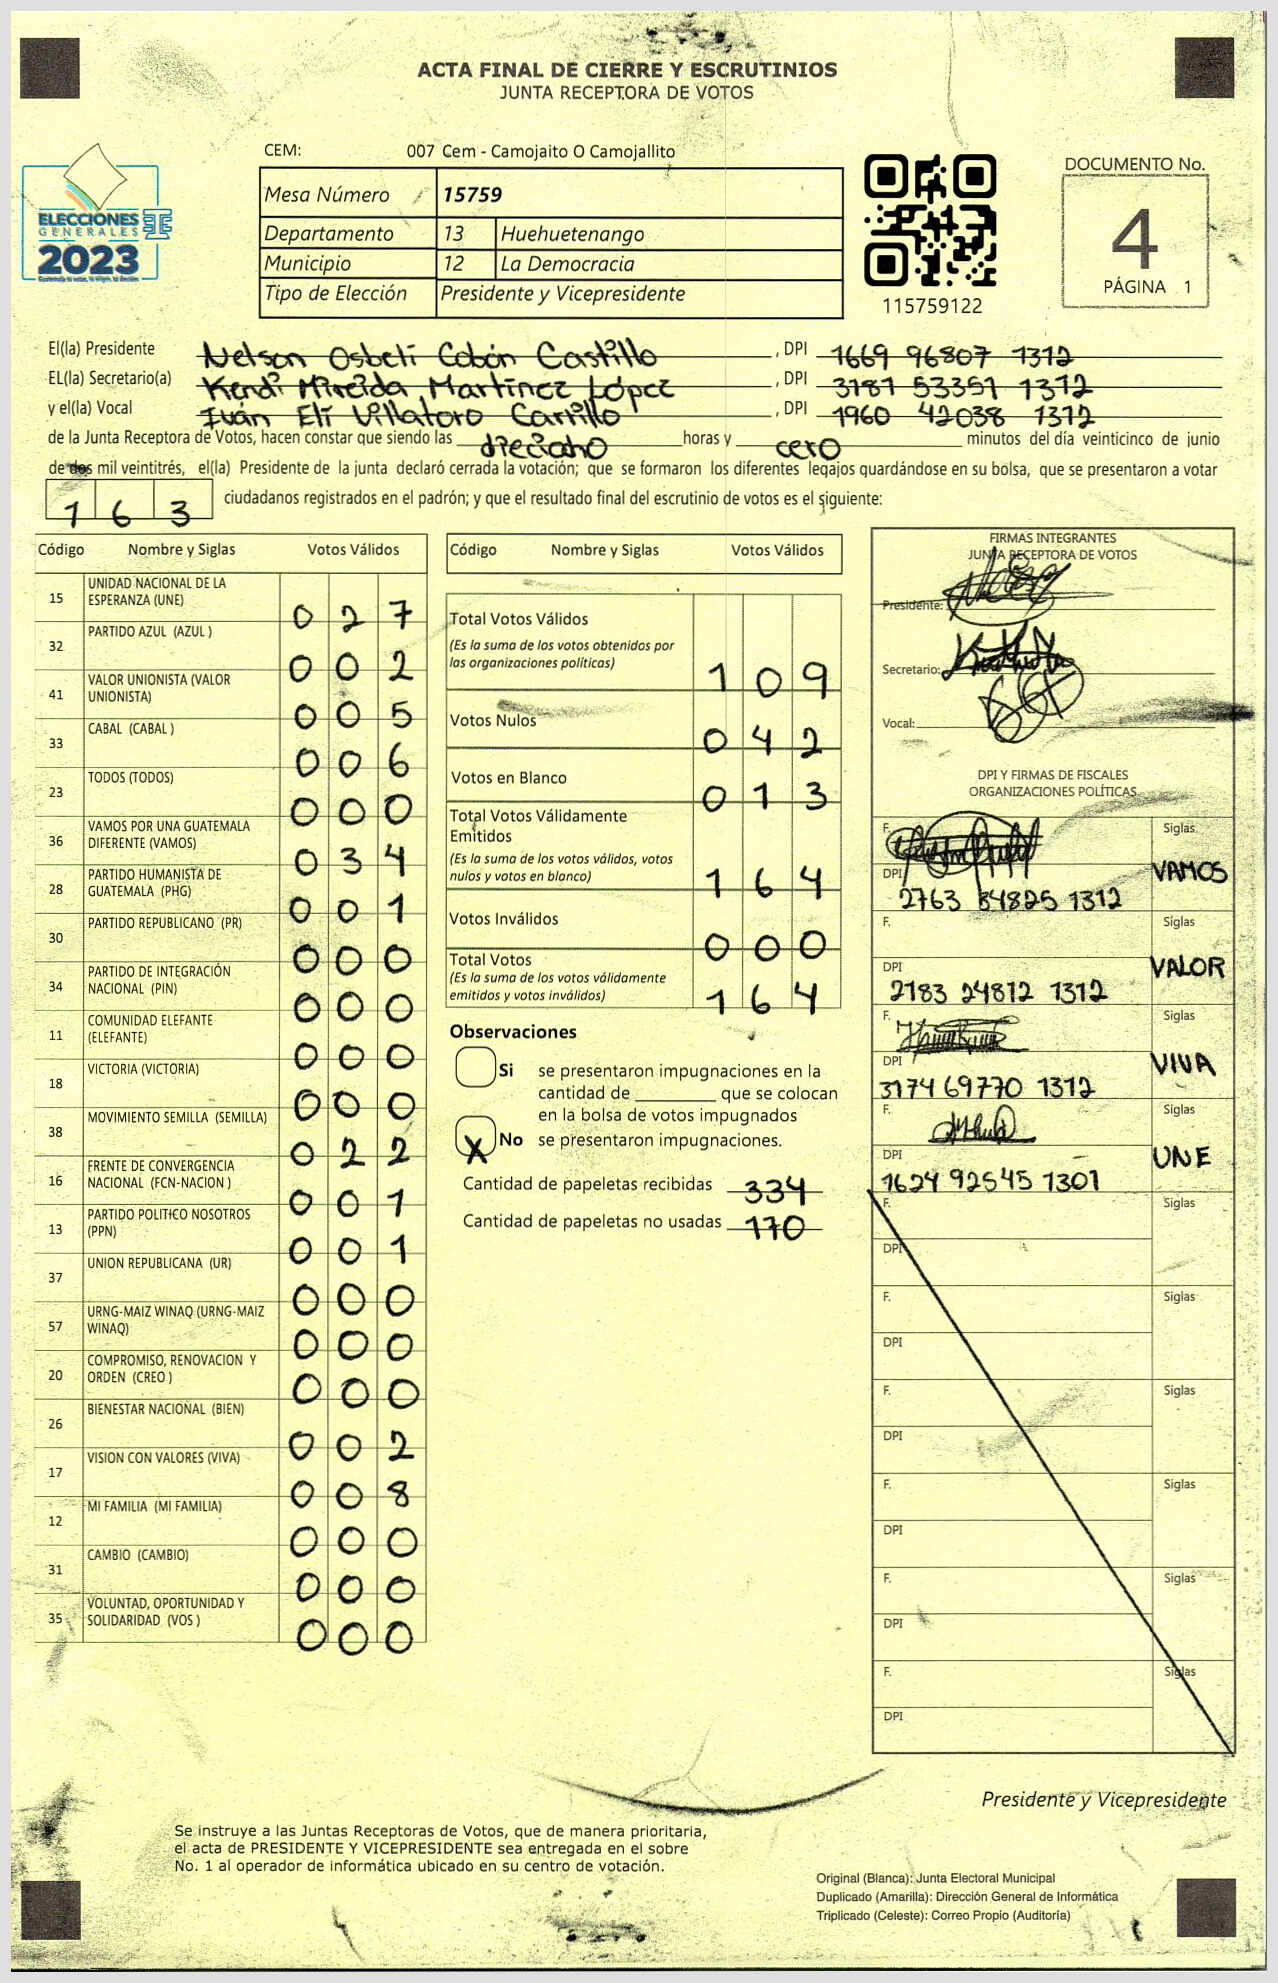 ACTA FINAL DE CIERRE Y ESCRUTINIOS
JUNTA RECEPTORA DE VOTOS
CEM: 007 Cem - Camojaito O Camojallito
Mesa Número 15759
Departamento 13 Huehuetenango
Municipio 12 La Democracia
Tipo de Elección Presidente y Vicepresidente
ELECCIONES
GENERALES
2023
115759122
DOCUMENTO No.
4
PÁGINA 1
El(la) Presidente Nelson Osbeli Cobón Castillo , DPI 1669 96807 1312
EL(la) Secretario(a) Kendi Mireida Martínez López , DPI 3187 53351 1312
y el(la) Vocal Iván Elí Villatoro Carrillo , DPI 1960 42038 1312
de la Junta Receptora de Votos, hacen constar que siendo las dieciocho horas y cero minutos del día veinticinco de junio
de dos mil veintitrés, el(la) Presidente de la junta declaró cerrada la votación; que se formaron los diferentes legajos quardándose en su bolsa, que se presentaron a votar
163 ciudadanos registrados en el padrón; y que el resultado final del escrutinio de votos es el siguiente:
Código Nombre y Siglas Votos Válidos
15 UNIDAD NACIONAL DE LA ESPERANZA (UNE) 027
32 PARTIDO AZUL (AZUL ) 002
41 VALOR UNIONISTA (VALOR UNIONISTA) 005
33 CABAL (CABAL ) 006
23 TODOS (TODOS) 000
36 VAMOS POR UNA GUATEMALA DIFERENTE (VAMOS) 034
28 PARTIDO HUMANISTA DE GUATEMALA (PHG) 001
30 PARTIDO REPUBLICANO (PR) 000
34 PARTIDO DE INTEGRACIÓN NACIONAL (PIN) 000
11 COMUNIDAD ELEFANTE (ELEFANTE) 000
18 VICTORIA (VICTORIA) 000
38 MOVIMIENTO SEMILLA (SEMILLA) 022
16 FRENTE DE CONVERGENCIA NACIONAL (FCN-NACION ) 001
13 PARTIDO POLITICO NOSOTROS (PPN) 001
37 UNION REPUBLICANA (UR) 000
57 URNG-MAIZ WINAQ (URNG-MAIZ WINAQ) 000
20 COMPROMISO, RENOVACION Y ORDEN (CREO ) 000
26 BIENESTAR NACIONAL (BIEN) 002
17 VISION CON VALORES (VIVA) 008
12 MI FAMILIA (MI FAMILIA) 000
31 CAMBIO (CAMBIO) 000
35 VOLUNTAD, OPORTUNIDAD Y SOLIDARIDAD (VOS ) 000
Código Nombre y Siglas Votos Válidos
Total Votos Válidos
(Es la suma de los votos obtenidos por
las organizaciones políticas) 109
Votos Nulos 042
Votos en Blanco 013
Total Votos Válidamente
Emitidos
(Es la suma de los votos válidos, votos
nulos y votos en blanco) 164
Votos Inválidos 000
Total Votos
(Es la suma de los votos válidamente
emitidos y votos inválidos) 164
Observaciones
Si se presentaron impugnaciones en la
cantidad de ________ que se colocan
en la bolsa de votos impugnados
X No se presentaron impugnaciones.
Cantidad de papeletas recibidas 334
Cantidad de papeletas no usadas 170
FIRMAS INTEGRANTES
JUNTA RECEPTORA DE VOTOS
Presidente:
Secretario:
Vocal:
DPI Y FIRMAS DE FISCALES
ORGANIZACIONES POLÍTICAS
F. Siglas
VAMOS
DPI 2763 84825 1312
F. Siglas
VALOR
DPI 2183 24812 1312
F. Siglas
VIVA
DPI 3174 69770 1312
F. Siglas
UNE
DPI 1624 92545 1301
F. Siglas
DPI
F. Siglas
DPI
F. Siglas
DPI
F. Siglas
DPI
F. Siglas
DPI
F. Siglas
DPI
Presidente y Vicepresidente
Se instruye a las Juntas Receptoras de Votos, que de manera prioritaria,
el acta de PRESIDENTE Y VICEPRESIDENTE sea entregada en el sobre
No. 1 al operador de informática ubicado en su centro de votación.
Original (Blanca): Junta Electoral Municipal
Duplicado (Amarilla): Dirección General de Informática
Triplicado (Celeste): Correo Propio (Auditoría)